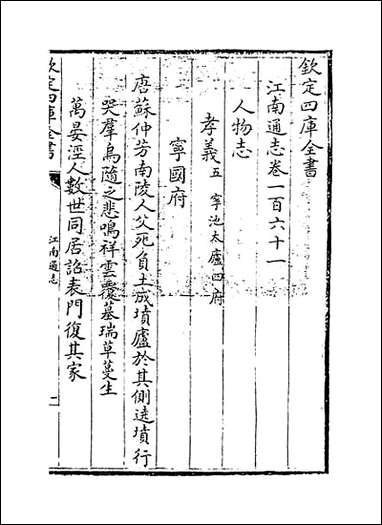 欽定四庫全書
江南通志卷一百六十一
人物志
孝義五 寧池太廬四府
寧國府
唐蘇仲芳南陵人父死負土成墳廬於其側遶墳行
哭羣鳥隨之悲鳴祥雲覆墓瑞草蔓生
萬晏涇人數世同居詔表門復其家
欽定四庫全書
江南通志